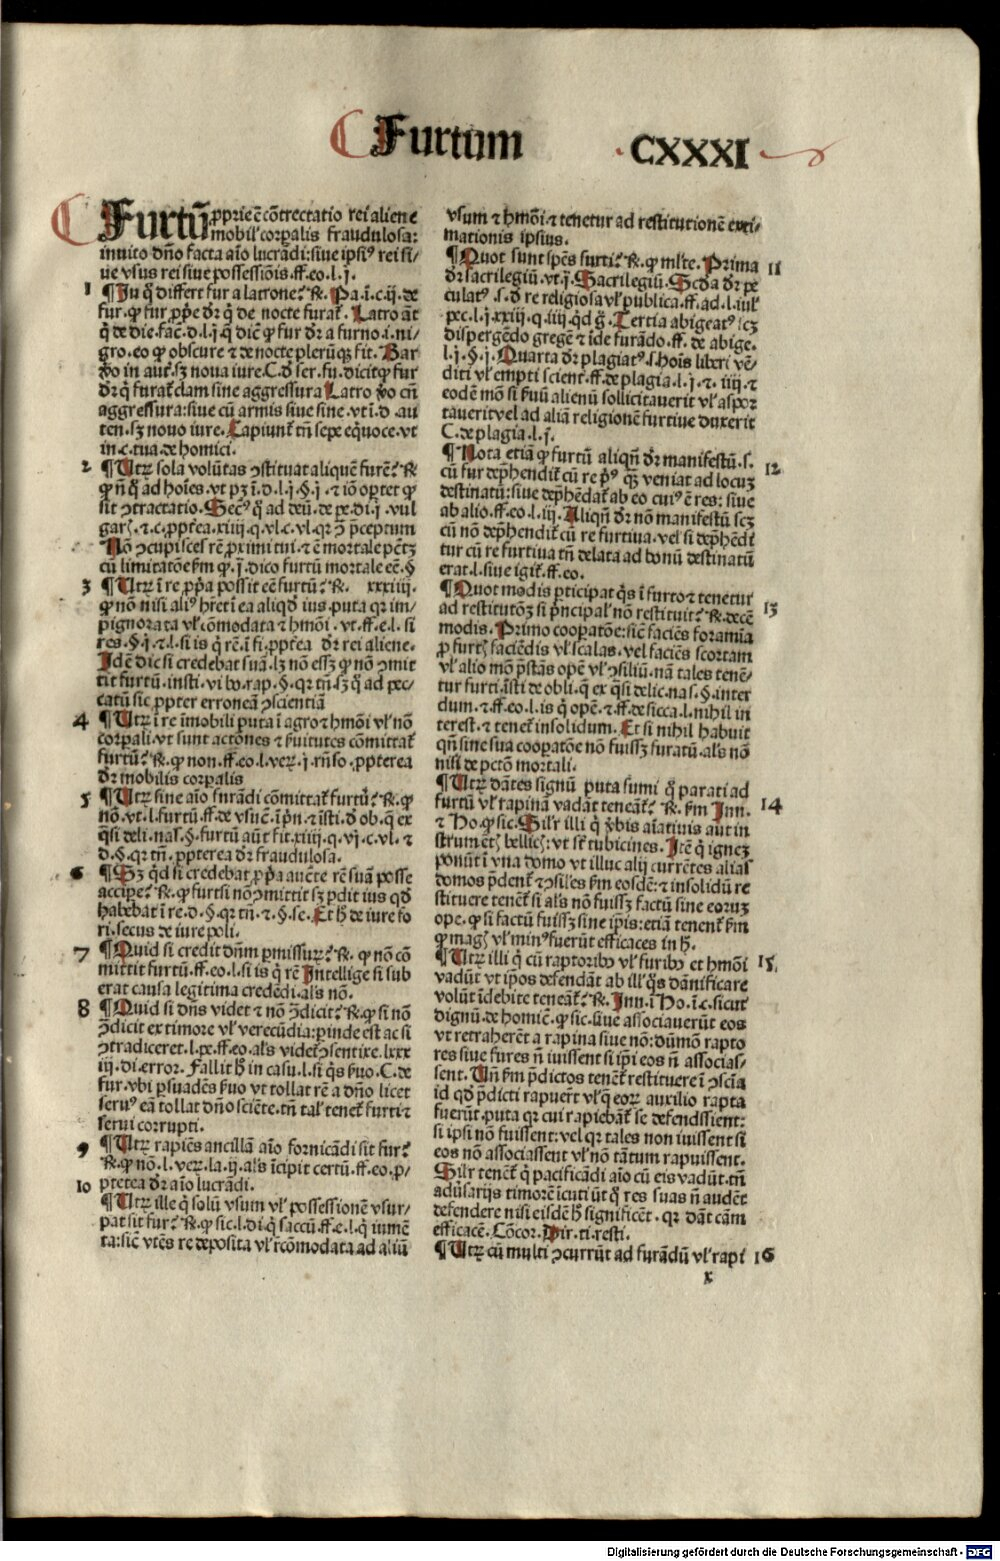 Furtum
CXXXI
Furtū ꝓprie ē cōtrectatio rei aliene
mobilˀ corꝑalis fraudulosa:
inuito dn̄o facta aīo lucrādi: siue ipsiꝰ rei si/
ue vsus rei siue possessiōis. ff. eo. l. j.
1 ¶ In q̄ differt fur a latrone? R̄. Pa. ī. c. ij. de
fur. ꝙ fur ꝓp̄e dr̄ q̇ de nocte furat̉. Latro āt
q̇ de die. fac̄. d. l. j. q̇ dic̄ ꝙ fur dr̄ a furno. i. ni/
gro. eo ꝙ obscure ⁊ de nocte plerūqꝫ fit. Bar
ꝟo in aut̄. sꝫ noua iure. C. d̄ ser. fu. dicit ꝙ fur
dr̄ q̇ furat̉ clam sine aggressura Latro ꝟo cū
aggressura: siue cū armis siue sine. vt ī. d. au
ten. sꝫ nouo iure. Capiunt̉ tn̄ sepe eq̇uoce. vt
in. c. tua. de homici.
2 ¶ Utꝝ sola volūtas ꝯstituat aliquē furē? R̄
ꝙ n̄ q̇ ad hoīes. vt pꝫ ī. d. l. j. §. j. ⁊ iō oꝑtet ꝙ
sit ꝯtractatio. Secꝰ q̇ ad deū. de pe. di. j. vul
garꝭ. ⁊. c. ꝓpt̄ea. xiiij. q. vl. c. vl. qꝛ ꝫ p̄ceptum
Nō ꝯcupisces rē ꝓximi tui. ⁊ ē mortale pctꝫ
cū limitatōe s̄m ꝙ. j. dico furtū mortale eē. §
3 ¶ Utꝝ ī re ꝓpˀa possit eē furtū? R̄. xxxiiij.
ꝙ nō nisi aliꝰ hr̄et ī ea aliqd̄ ius. puta qꝛ im/
pignorata vl̉ cōmodata ⁊ hmōi. vt. ff. e. l. si
res. §. j. ⁊. l. si is q̇ rē. ī fi. ꝓpt̄ea dr̄ rei aliene.
Idē dic si credebat suā. lꝫ nō essꝫ ꝙ nō ꝯmit
tit furtū. insti. vi bo. rap. §. qꝛ tn̄. sꝫ q̇ ad pec/
catū sic ꝓpter erroneā ꝯscientiā
4 ¶ Utꝝ ī re īmobili puta ī agro ⁊ hmōi vl̉ nō
corꝑali. vt sunt actōnes ⁊ s̄uitutes cōmittat̉
furtū? R̄. ꝙ non. ff. eo. l. veꝝ. j. rn̄so. ꝓpterea
dr̄ mobilis corꝑalis
5 ¶ Utꝝ sine aīo furādi cōmittat̉ furtū? R̄. ꝙ
nō. vt. l. furtū. ff. de vsuc̄. ī pn̄. ⁊ īsti. d̄ ob. q̄ ex
q̇si deli. nas̄. §. furtū aūt fit. xiiij. q. vj. c. vl. ⁊
d. §. qꝛ tn̄. ꝓpterea dr̄ fraudulosa.
6 ¶ Sꝫ qd̄ si credebat ꝓpˀa aucte rē suā posse
accipe? R̄. ꝙ furtū nō ꝯmittit sꝫ ꝑdit ius qd̄
habebat ī re. d. §. qꝛ tn̄. ⁊. §. se. Et h̄ de iure fo
ri. secus de iure poli.
7 ¶ Quid si credit dn̄m ꝑmissuꝝ? R̄. ꝙ nō cō
mittit furtū. ff. eo. l. si is q̇ rē Intellige si sub
erat causa legitima credēdi. als̄ nō.
8 ¶ Quid si dn̄s videt ⁊ nō ꝯdicit? R̄. ꝙ si nō
ꝯdicit ex timore vl̉ verecūdia: ꝑinde est ac si
ꝯtradiceret. l. pe. ff. eo. als̄ videt̉ ꝯsentire. lxxx
iij. di. error. Fallit h̄ in casu. l. si q̇s s̄uo. C. de
fur. vbi ꝑsuadēs s̄uo vt tollat rē a dn̄o licet
seruꝰ eā tollat dn̄o sciēte. tn̄ tal̉ tenet̉ furti ⁊
serui corrupti.
9 ¶ Utꝝ rapiēs ancillā aīo fornicādi sit fur?
R̄. ꝙ nō. l. veꝝ. la. ij. als̄ īcipit certū. ff. eo. ꝓ/
pterea dr̄ aīo lucrādi.
10 ¶ Utꝝ ille q̇ solū vsum vl̉ possessionē vsur/
pat sit fur? R̄. ꝙ sic. l. di. q̇ saccū. ff. e. l. q̇ iumē
ta: sic̄ vtēs re deposita vl̉ ꝯcōmodata ad aliū
vsum ⁊ hmōi. ⁊ tenetur ad restitutionē exti/
mationis ipsius.
¶ Quot sunt sp̄es furti? R̄. ꝙ ml̄te. Prima 11
dr̄ sacrilegiū. vt. j. Sacrilegiū. Scd̄a dr̄ pe
culatꝰ. s. d̄ re religiosa vl̉ publica. ff. ad. l. iul̉
pec. l. j. xxiij. q. iiij. qd̄ g̊. Tertia abigeatꝰ scꝫ
dispergēdo gregē ⁊ īde furādo. ff. de abige.
l. j. §. j. Quarta dr̄ plagiatꝰ. s. hoīs liberi vē/
diti vl̉ empti scient̉. ff. de plagia. l. j. ⁊. iiij. ⁊
eodē mō si s̄uū alienū sollicitauerit vl̉ aspor
tauerit vel ad aliā religionē furtiue duxerit
C. de plagia. l. j.
¶ Nota etiā ꝙ furtū aliqn̄ dr̄ manifestū. s. 12
cū fur dep̄hendit̉ cū re pˀꝰ qꝫ veniat ad locuꝫ
destinatū: siue dep̄hēdat̉ ab eo cuiꝰ ē res: siue
ab alio. ff. eo. l. iij. Aliqn̄ dr̄ nō manifestū scꝫ
cū nō dep̄hendit̉ cū re furtiua. vel si dep̄hēdi
tur cū re furtiua tn̄ delata ad bonū destinatū
erat. l. siue igit̉. ff. eo.
¶ Quot modis ꝑticipat q̇s ī furto ⁊ tenetur 13
ad restitutōꝫ si pˀncipal̉ nō restituit? R̄. decē
modis. Primo cooꝑatōe: sic̄ faciēs foramīa
ꝓ furtꝭ faciēdis vl̉ scalas. vel faciēs scortam
vl̉ alio mō p̄stās opē vl̉ ꝯsiliū. nā tales tenē/
tur furti. īsti de obli. q̄ ex q̇si delic. nas. §. inter
dum. ⁊. ff. eo. l. is q̇ opē. ⁊. ff. de sicca. l. nihil in
terest. ⁊ tenet̉ insolidum. Et si nihil habuit
qn̄ sine sua cooꝑatōe nō fuissꝫ furatū. als̄ nō
nisi de pctō mortali.
¶ Utꝝ dātes signū puta fumi q̇ parati ad
furtū vl̉ rapinā vadāt teneāt̉? R̄. s̄m Inn. 14
⁊ Ho. ꝙ sic. Sil̉r illi q̇ ꝟbis aīatiuis aut in
strumētꝭ bellicꝭ: vt sūt tubicines. Itē q̇ igneꝫ
ponūt ī vna domo vt illuc alij currētes alias
domos ꝑdent̉ ⁊ ꝯsiles s̄m eosdē: ⁊ insolidū re
stituere tenēt̉ si als̄ nō fuissꝫ factū sine eoruꝫ
ope. ꝙ si factū fuissꝫ sine ipīs: etiā tenent̉ s̄m
ꝙ magꝭ vl̉ minꝰ fuerūt efficaces in h̄.
¶ Utꝝ illi q̇ cū raptoribꝰ vl̉ furibꝰ et hmōi 15.
vadūt vt ip̄os defendāt ab ill̉ q̇s dānificare
volūt īdebite teneāt̉? R̄. Inn. ī Ho. ī. c. sicut
dignū. de homic̄. ꝙ sic. siue associauerūt eos
vt retraherēt a rapina siue nō: dūmō rapto
res siue fures n̄ iuissent si ip̄i eos n̄ associas/
sent. Un̄ s̄m p̄dictos tenent̉ restituere ī ꝯscīa
id qd̄ p̄dicti rapuerūt vl̉ q̇ eoꝝ auxilio rapta
fuerūt. puta qꝛ cui rapiebāt̉ se defendissent:
si ipsi nō fuissent: vel qꝛ tales non iuissent si
eos nō associassent vl̉ nō tātum rapuissent.
Sil̉r tenēt̉ q̇ pacificādi aīo cū eis vadūt. tn̄
aduˀsarijs timorē īcutiūt q̇ res suas n̄ audēt
defendere nisi eisdē h̄ significēt. qꝛ dāt cām
efficacē. Cōcor. Dir. ti. resti.
¶ Utꝝ cū multi ꝯcurrūt ad furādū vl̉ rapi 16
x
Digitalisierung gefördert durch die Deutsche Forschungsgemeinschaft - DFG